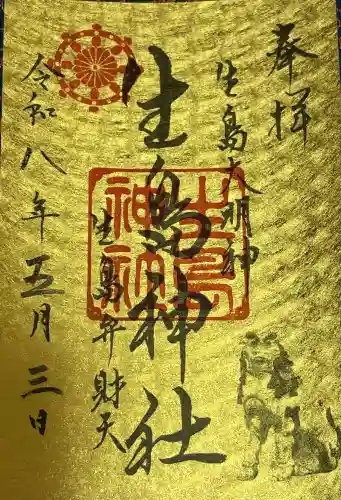 奉拝
生島大明神
生島神社
生島神社
生島弁財天
弁
令和八年五月三日